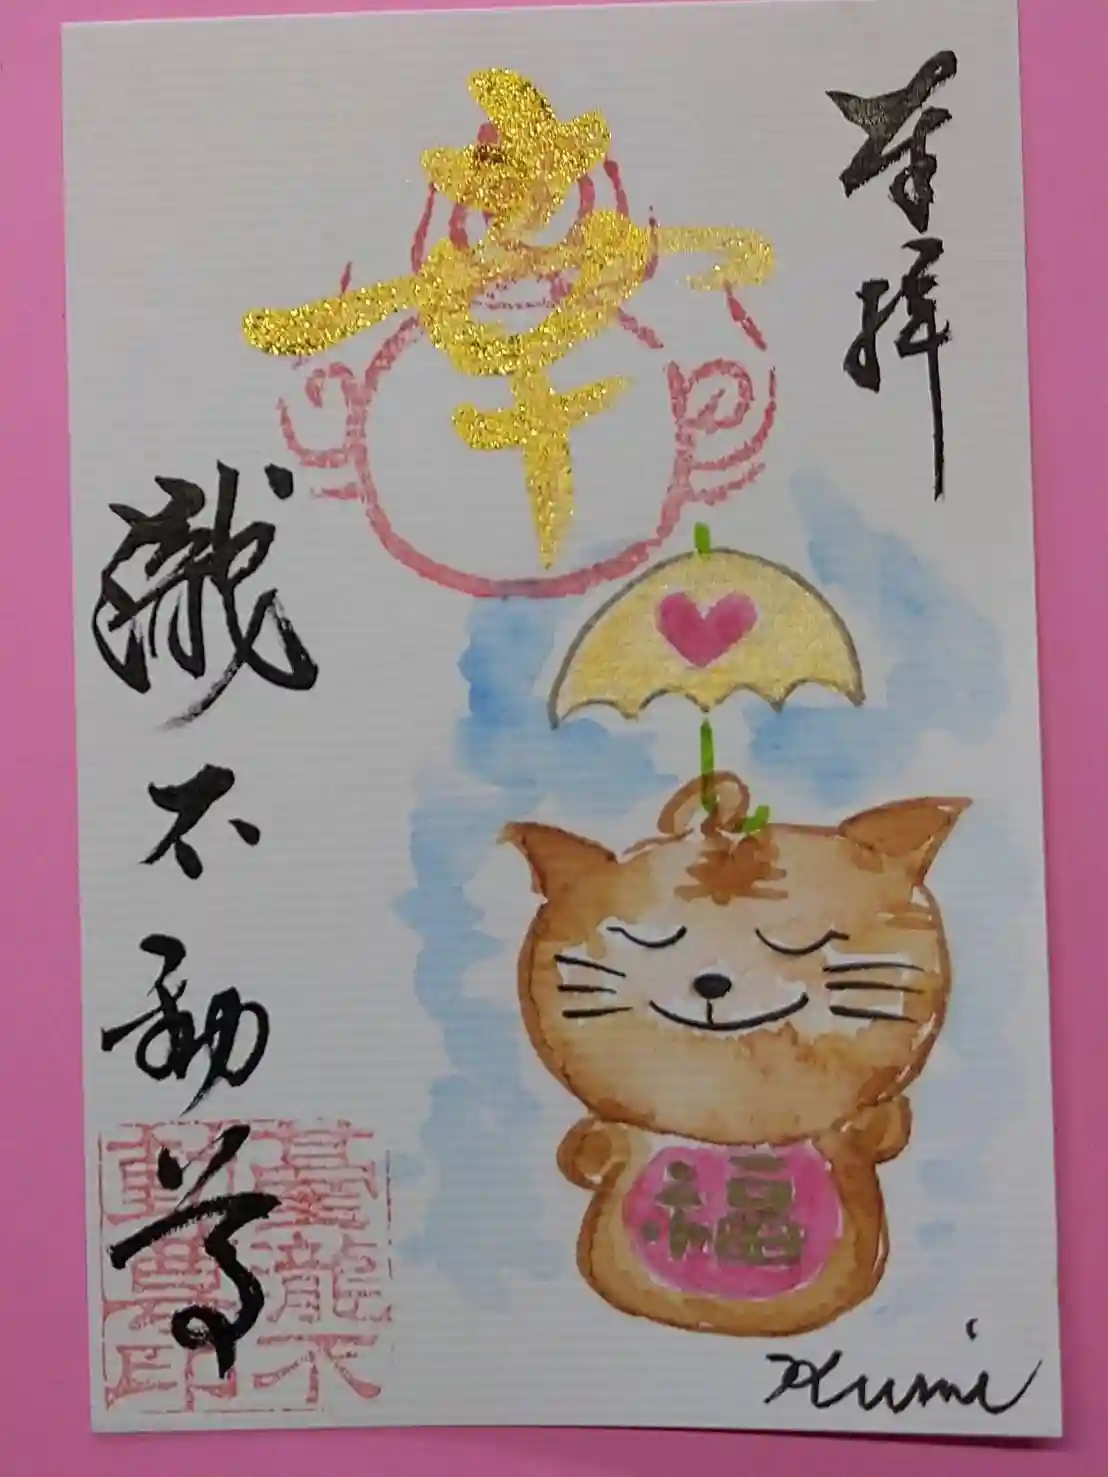 奉拝
幸
瀧不動尊
福
Kumi